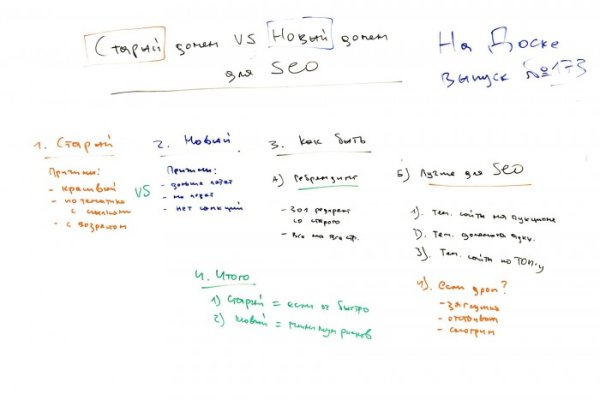 Старый домен VS Новый домен
для SEO
На Доске
выпуск №173
1. Старый
Причины:
- красивый
- по тематике
с ссылками
- с возрастом
VS
2. Новый
Причины:
- дольше
- не
- нет санкций
3. Как быть
А) Ребрендинг
- 301 редирект
со старого
- Все на все стр.
Б) Лучше для SEO
1). Тем. сайты на аукционе
2). Тем. домена аукц.
3). Тем. сайты по ТОПу
4). Если дроп?
- заглушка
- отстаиваем
- смотрим
4. Итого
1) Старый = если оч быстро
2) Новый = минимум рисков